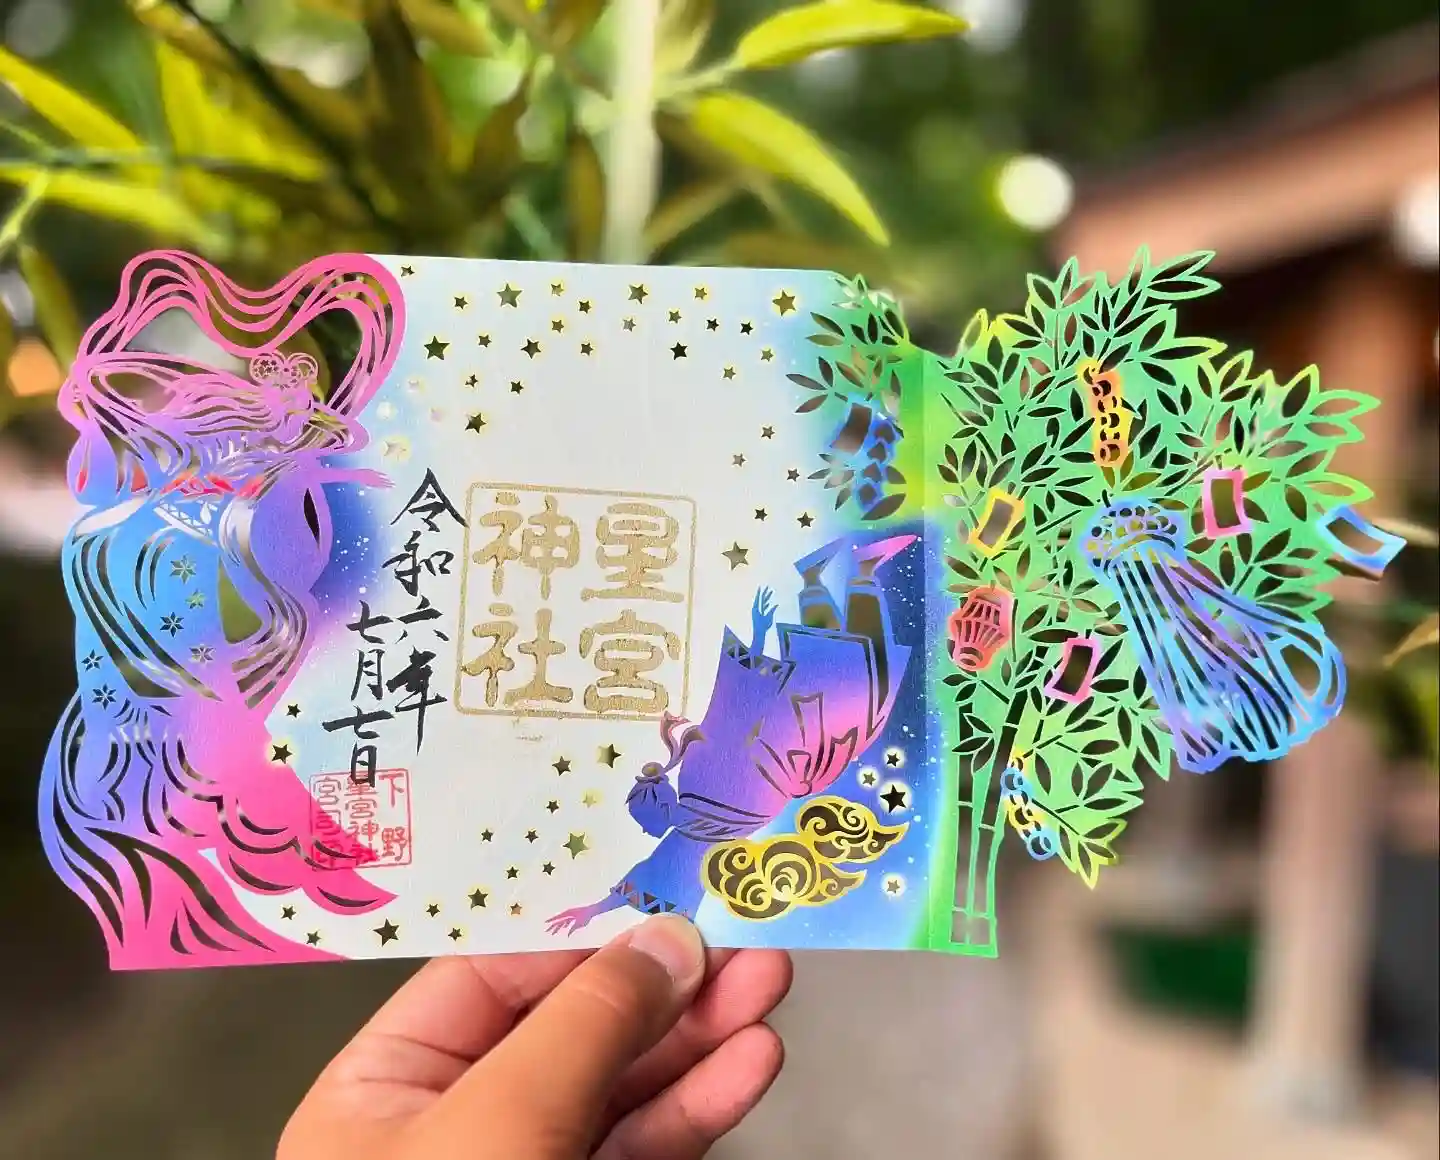 星宮
神社
令和六年
七月七日
下野
星宮神社
宮司印